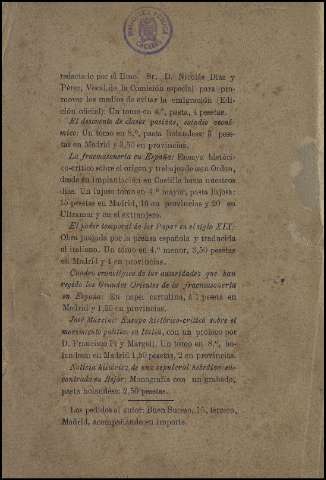 redactado por el Ilmo. Sr. D. Nicolás Díaz y
Pérez, Vocal de la Comisión especial para pro-
mover los medios de evitar la emigración (Edi-
ción oficial): Un tomo en 4.º, pasta, 4 pesetas.
El descuento de clases pasivas, estudio econó-
mico: Un tomo en 8.º, pasta holandesa: 3 pese-
tas en Madrid y 3,50 en provincias.
La francmasonería en España: Ensayo históri-
co-crítico sobre el origen y trabajos de esta Orden,
desde su implantación en Castilla hasta nuestros
días. Un lujoso tomo en 4.º mayor, pasta
15 pesetas en Madrid, 16 en provincias y 20 en
Ultramar y en el extranjero.
El poder temporal de los Papas en el siglo XIX:
Obra juzgada por la prensa española y traducida
al italiano. Un tomo en 4.º menor, 3,50 pesetas
en Madrid y 4 en provincias.
Cuadro cronológico de las autoridades que han
regido los Grandes Orientes de la francmasonería
en España: En papel cartulina, á 1 peseta en
Madrid y 1,25 en provincias.
José Mazzini: Ensayo histórico-crítico sobre el
movimiento político en Italia, con un prólogo por
D. Francisco Pí y Margall. Un tomo en 8.º, ho-
landesa: en Madrid 1,50 pesetas, 2 en provincias.
Noticia histórica de una sepulcral hebráica en-
contrada en Béjar: Monografía con un grabado,
pasta holandesa: 2,50 pesetas.
Los pedidos al autor: Buen Suceso, 10, tercero,
Madrid, acompañando su importe.